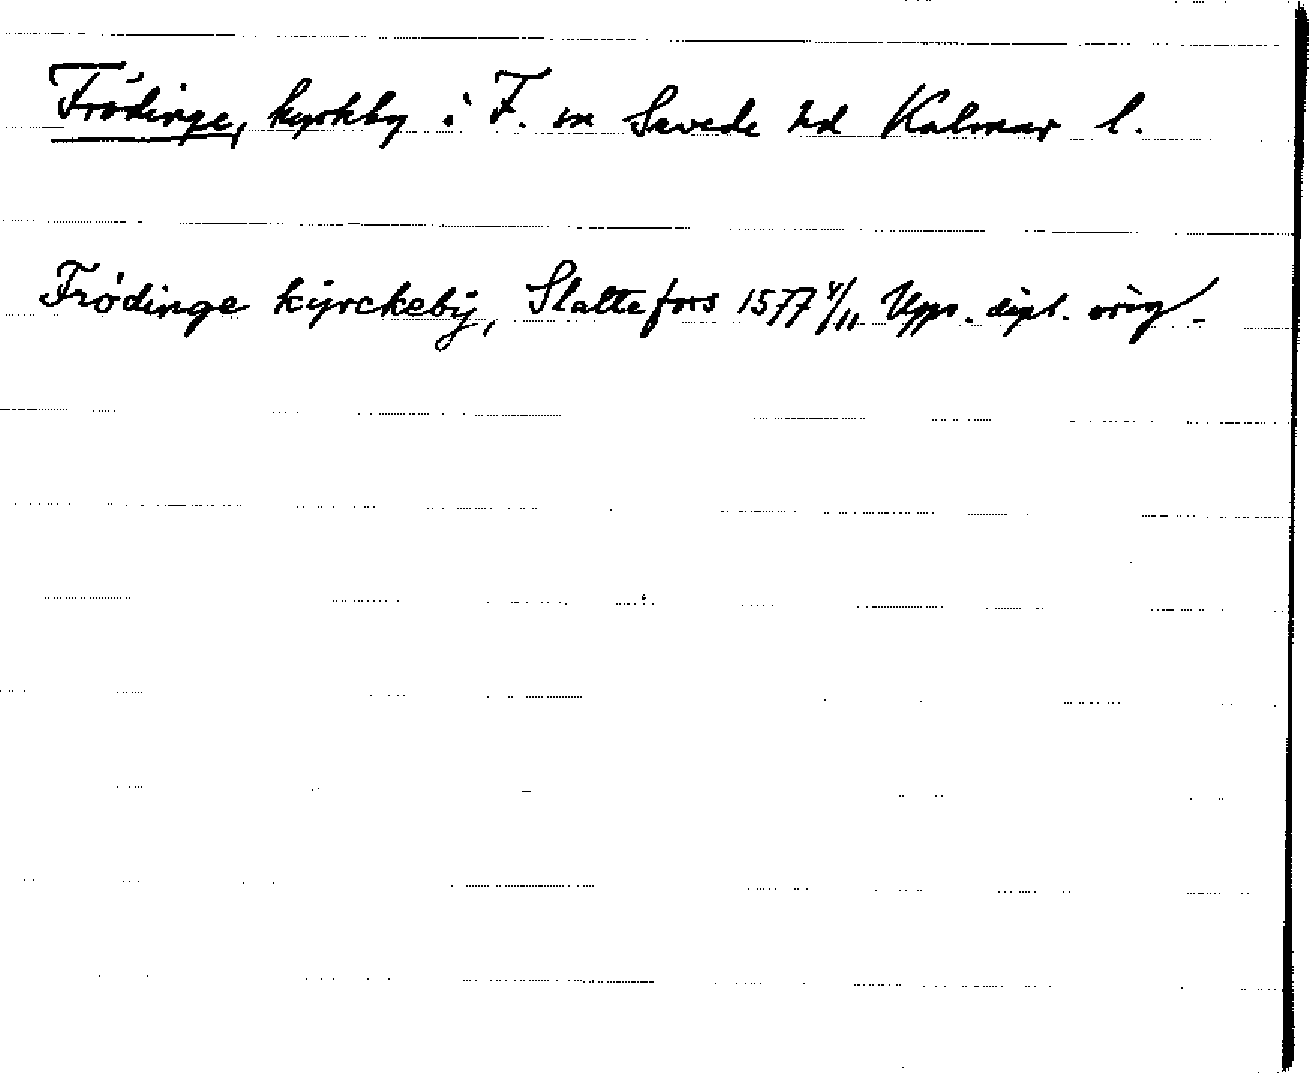 Frödinge, kyrkby i F. sn Sevede hd Kalmar l.
Frödinge kÿrckebÿ, Slattefors 1577 4/11 Upps. dipl. orig.